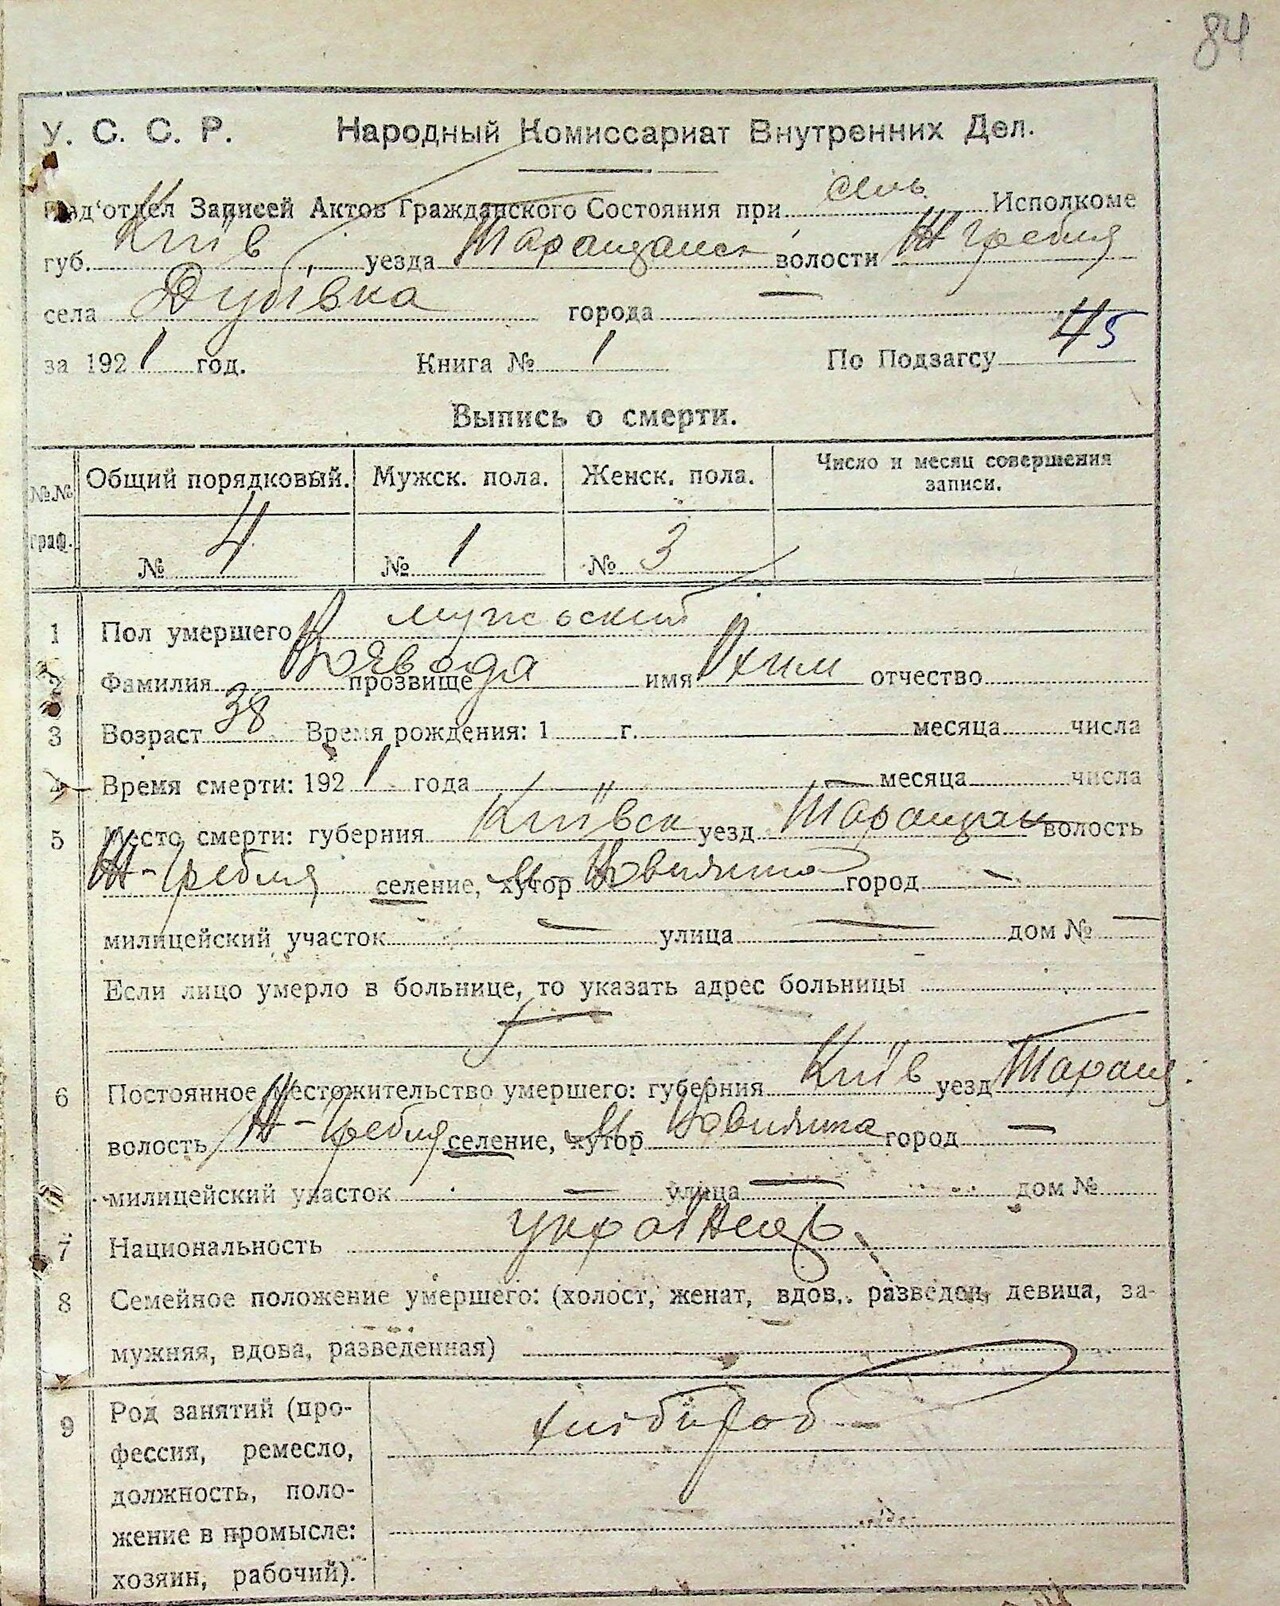 84
У. С. С. Р. Народный Комиссариат Внутренних Дел.
Под‘отдел Записей Актов Гражданского Состояния при сель Исполкоме
губ. Київ уезда Таращанск волости Ж Гребля
села Дубівка города —
за 1921 год. Книга № 1 По Подзагсу 45
Выпись о смерти.
№№ граф. Общий порядковый. Мужск. пола. Женск. пола. Число и месяц совершения записи.
№ 4 № 1 № 3
1 Пол умершего мужський
2 Фамилия прозвище Воявода имя Яхим отчество
3 Возраст 38 Время рождения: 1 г. месяца числа
4 Время смерти: 1921 года — месяца числа
5 Место смерти: губерния Київск уезд Таращан волость
Ж-Гребля селение, хутор город —
милицейский участок — улица — дом № —
Если лицо умерло в больнице, то указать адрес больницы
—
6 Постоянное местожительство умершего: губерния Київ уезд Таращ.
волость Ж-Гребля селение, хутор город —
милицейский участок — улица — дом №
7 Национальность
8 Семейное положение умершего: (холост, женат, вдов., разведен, девица, за-
мужняя, вдова, разведенная)
9 Род занятий (про-
фессия, ремесло, хлібороб
должность, поло-
жение в промысле:
хозяин, рабочий).